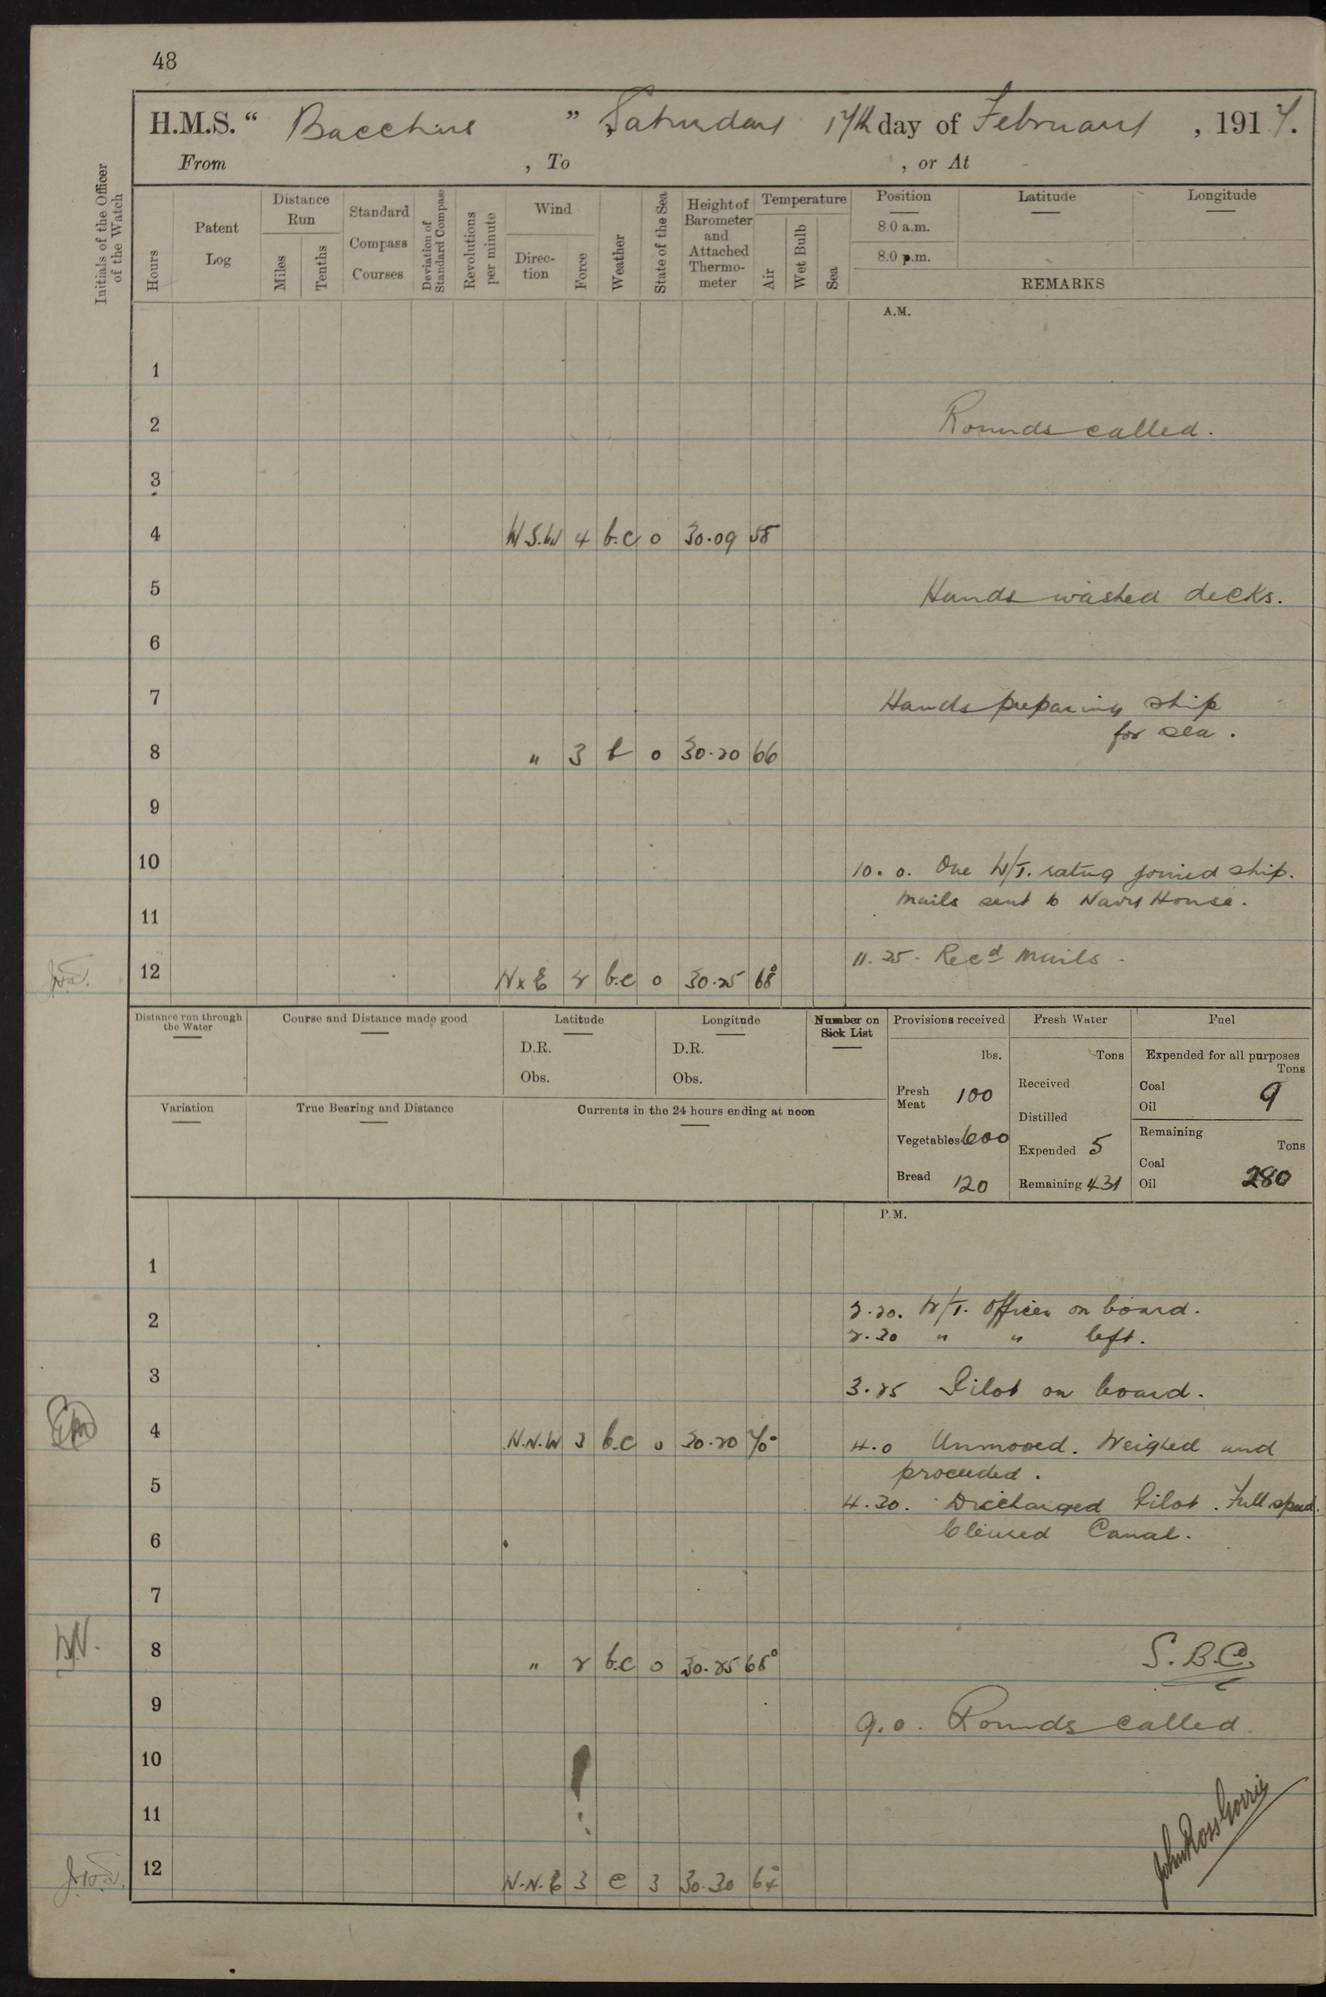 48
H.M.S. " Bacchus " Saturday 17th day of February , 1917.
From , To , or At
Initials of the Officer of the Watch
Hours
Patent Log
Distance Run
Miles
Tenths
Standard Compass Courses
Deviation of Standard Compass
Revolutions per minute
Wind
Direction
Force
Weather
State of the Sea
Height of Barometer and Attached Thermometer
Temperature
Air
Wet Bulb
Sea
Position Latitude Longitude
8.0 a.m.
8.0 p.m.
REMARKS
A.M.
1
2 Rounds called.
3
4 W.S.W 4 b.c 0 30.09 58
5 Hands washed decks.
6
7 Hands preparing ship
for sea.
8 " 3 b 0 30.20 66
9
10 10.0. One W/T. rating joined ship.
Mails sent to Navy House.
11
11.25. Recd Mails.
12 N x E 2 b.c 0 30.25 68°
Distance run through the Water
Course and Distance made good
Latitude
D.R.
Obs.
Longitude
D.R.
Obs.
Number on Sick List
Variation
True Bearing and Distance
Currents in the 24 hours ending at noon
Provisions received
lbs.
Fresh Meat 100
Vegetables 600
Bread 120
Fresh Water
Tons
Received
Distilled
Expended 5
Remaining 431
Fuel
Expended for all purposes
Tons
Coal
Oil 9
Remaining
Tons
Coal
Oil 280
P.M.
1
2 2.20. W/T. Officer on board.
2.30 " " left.
3 3.25 Pilot on board.
4 N.N.W 3 b.c 0 30.20 70° 4.0 Unmoored. Weighed and
proceeded.
5 4.30. Discharged Pilot. Full speed.
Cleared Canal.
6
7
8 " 2 b.c 0 30.25 68° S.B.Cd.
9 9.0. Rounds called.
10
11
12 N.N.E 3 c 3 30.30 64°
John Ross Gorrie